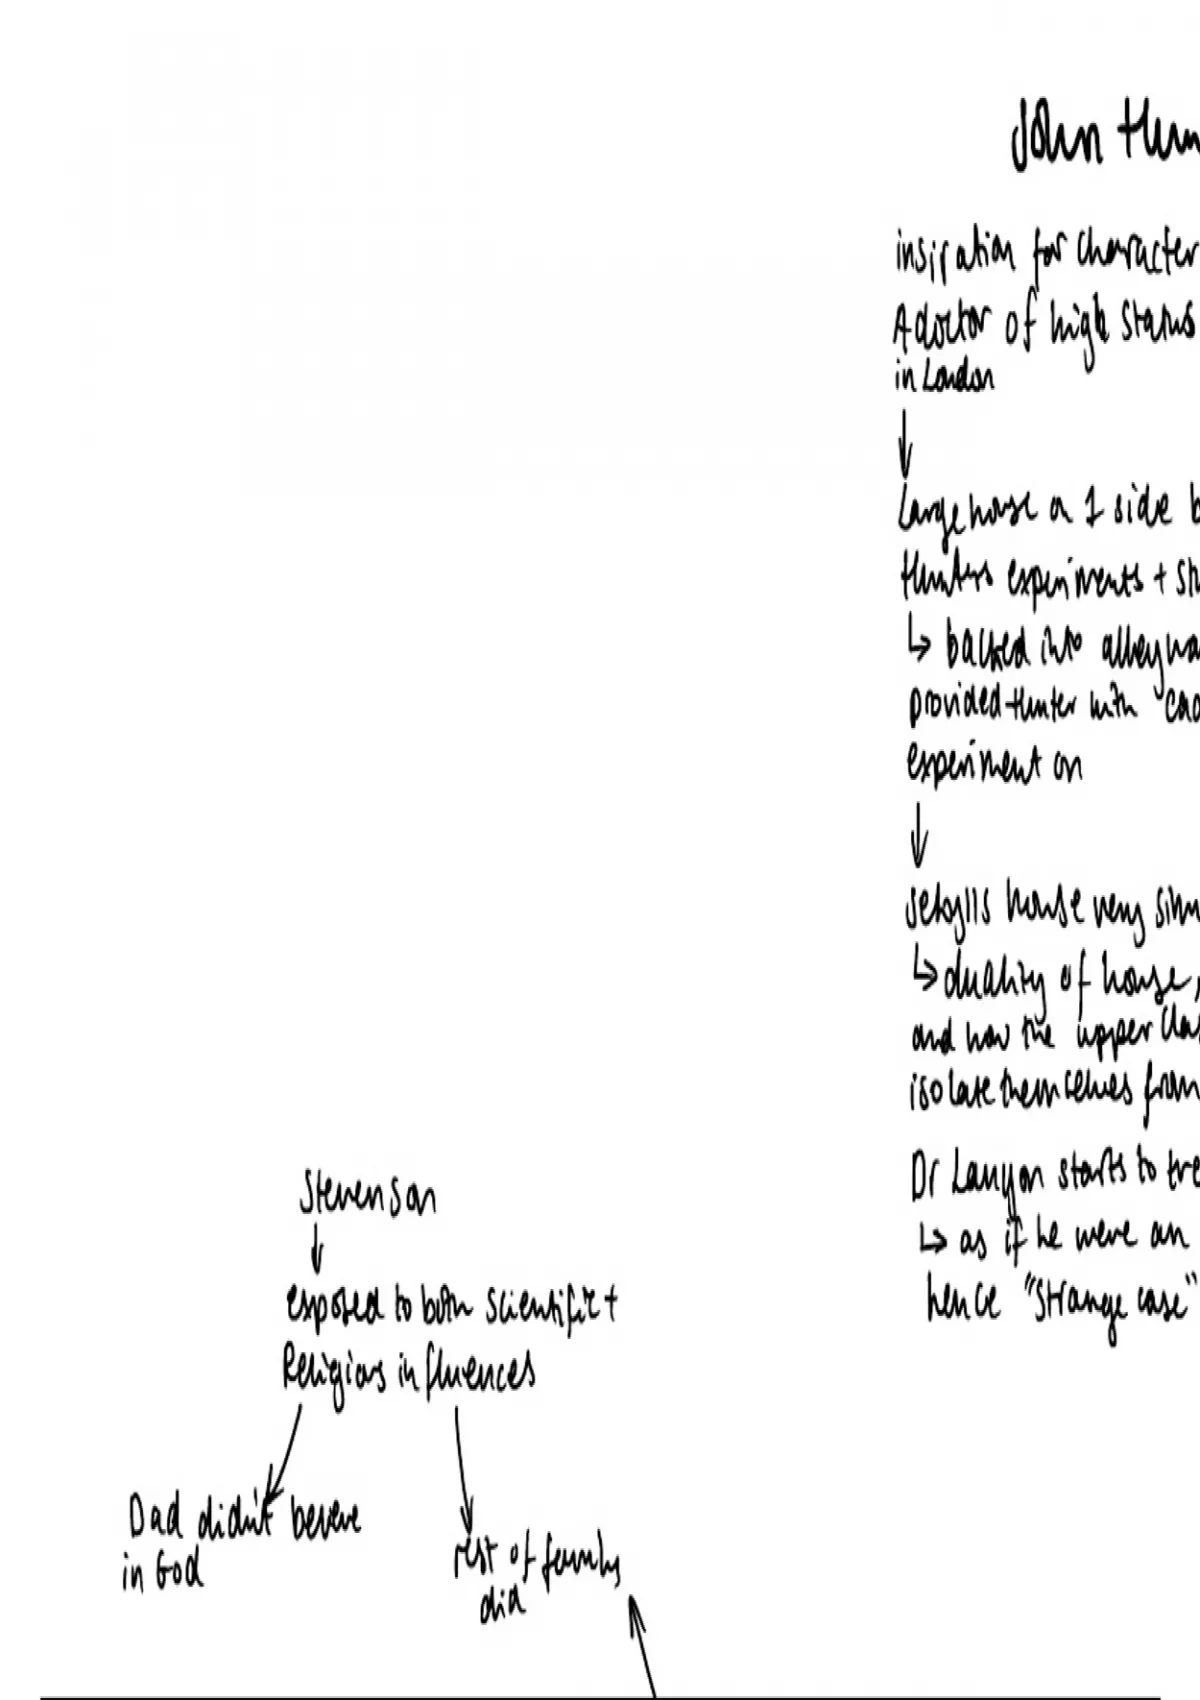 John Hun
insiration for character
A doctor of high status
in London
Large house on 1 side b
Hunters experiments + st
↳ backed into alleywa
provided Hunter with "cad
experiment on
Jekylls house very simi
↳ duality of house,
and how the upper clas
isolate themselves from
Dr Lanyon starts to tre
↳ as if he were an
hence "Strange case"
Stevenson
exposed to both scientific +
Religious influences
Dad didn't beleve
in God
rest of family
did